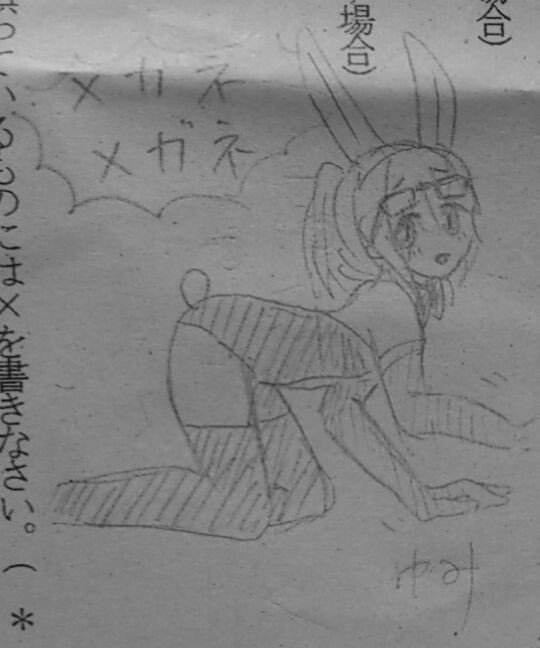 場合)
場合)
っているものには×を書きなさい。( *
メガネ
メガネ
ゆみ